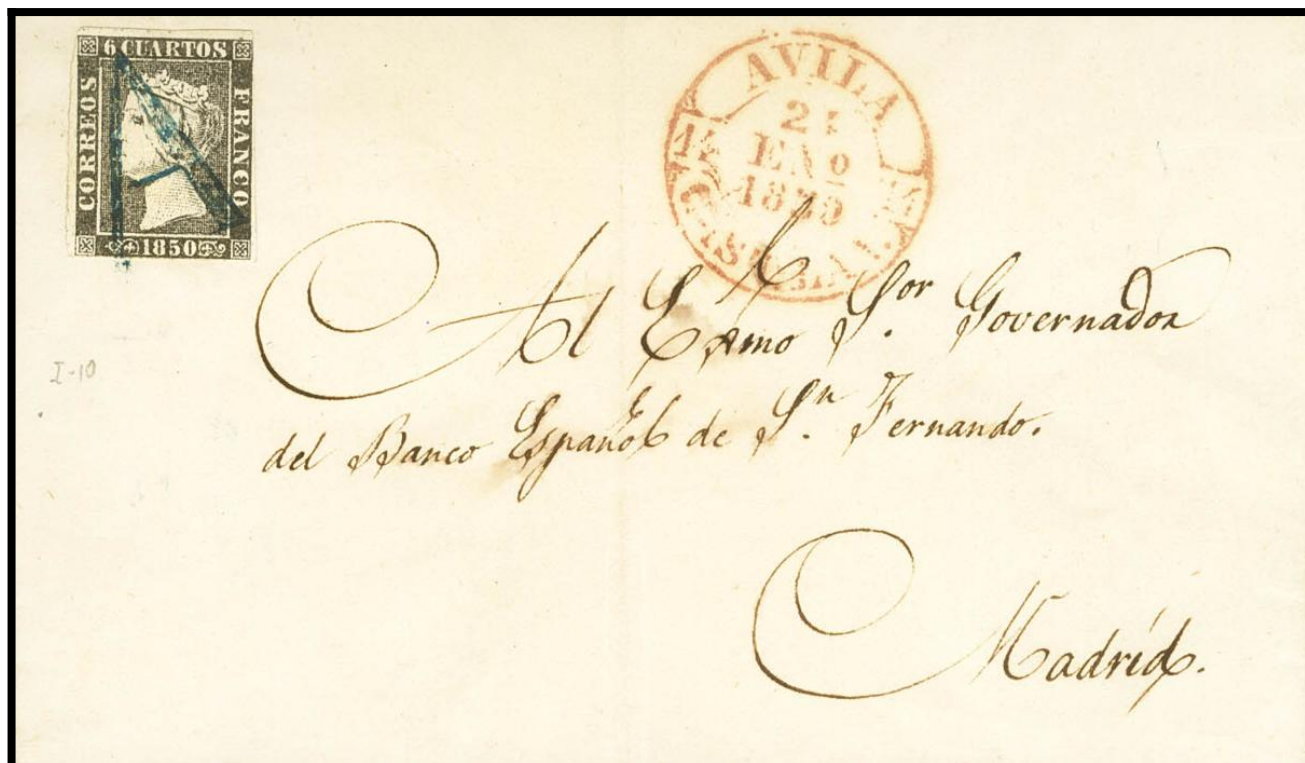 6 CUARTOS
CORREOS
FRANCO
1850
AVILA
21
ENO
18
Al Exmo Sor Governador
del Banco Español de Sn. Fernando.
Madrid.
I-10